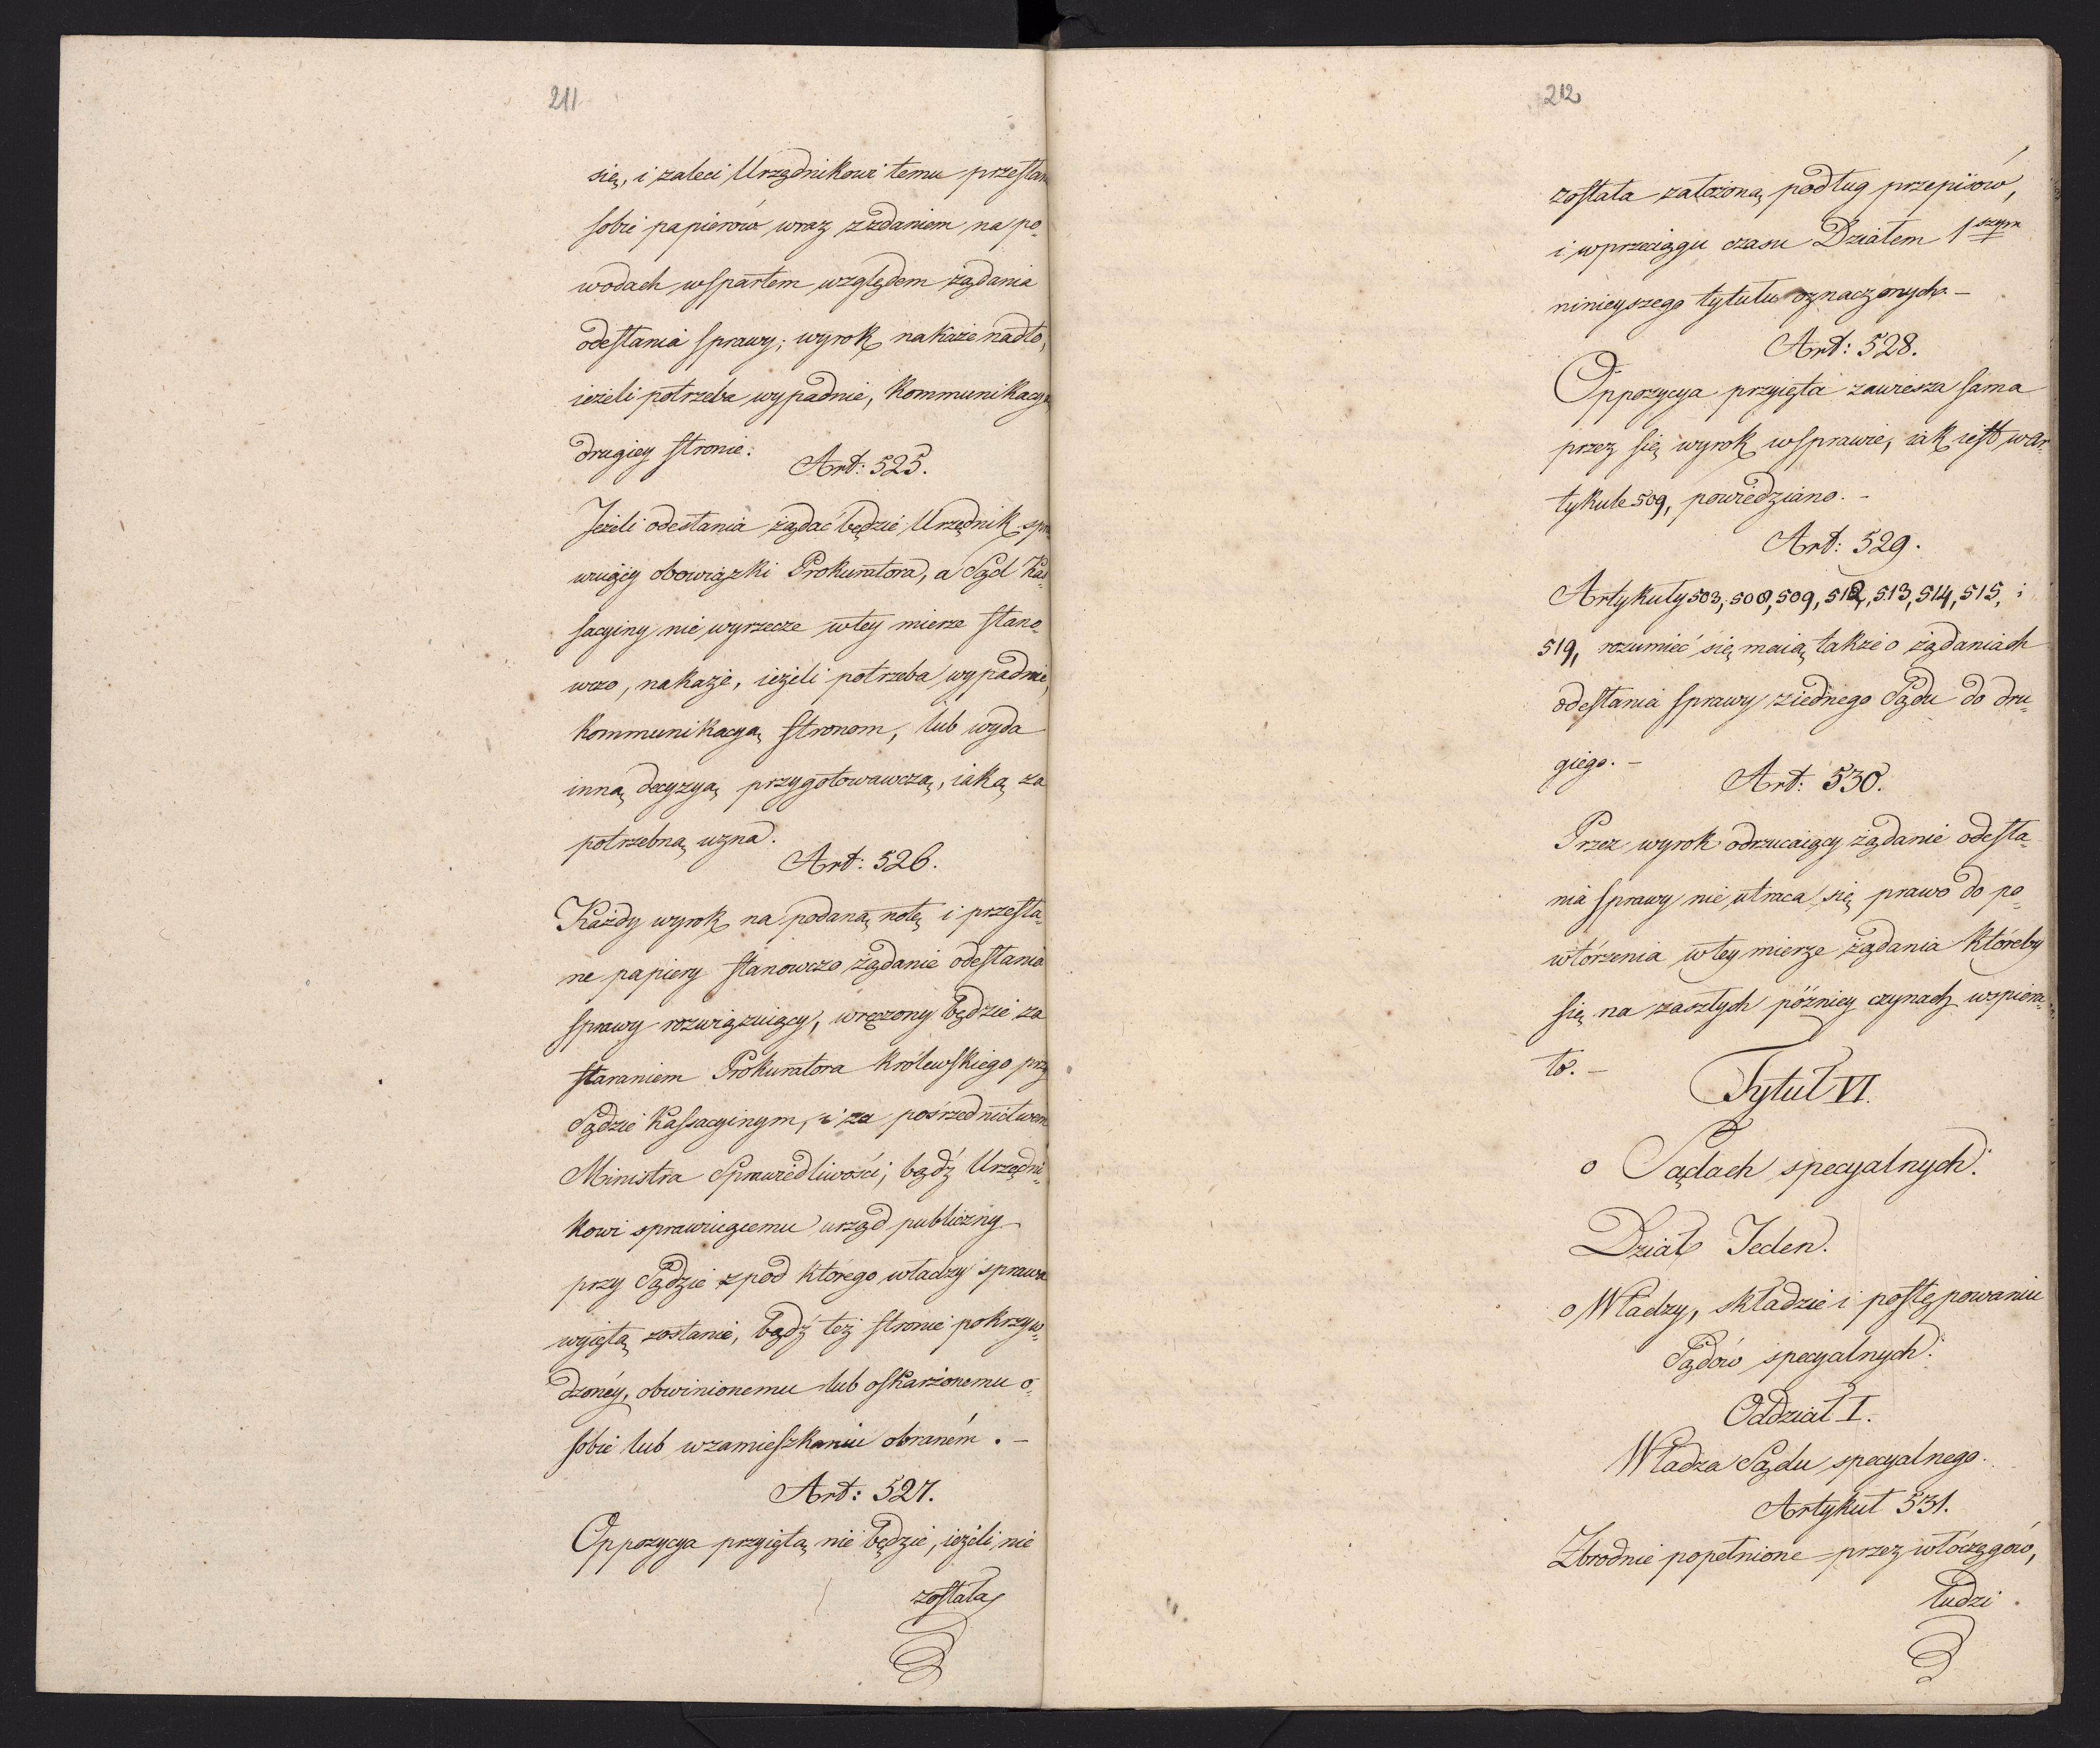 211
się, i zaleci Urzędnikowi temu przesłan
sobie papierów wraz z zdaniem na po„
wodach wspartem względem żądania
odesłania sprawy; wyrok nakaże nadto,
ieżeli potrzeba wypadnie, Kommunikacyą
drugiey stronie.
Art: 525.
Jeżeli odesłania żądać będzie Urzędnik spra
wuiący obowiązki Prokuratora, a Sąd Kas„
sacyiny nie wyrzecze w tey mierze stano„
wczo, nakaże, ieżeli potrzeba wypadnie,
kommunikacyą stronom, lub wyda
inną decyzyą przygotowawczą, iaką za
potrzebną uzna.
Art: 526.
Każdy wyrok na podaną notę i przesła„
ne papiery stanowczo żądanie odesłania
sprawy rozwiązuiący, wręczony będzie za
staraniem Prokuratora Królewskiego przy
Sądzie Kassacyinym, i za pośrednictwem
Ministra Sprawiedliwości; bądź Urzędni„
kowi sprawuiącemu urząd publiczny
przy Sądzie z pod którego władzy sprawa
wyiętą zostanie, bądź też stronie pokrzyw„
dzonéy, obwinionemu lub oskarżonemu o„
sobie lub w zamieszkaniu obraném. –
Art: 527.
Oppozycya przyiętą nie będzie, ieżeli nie
została
212
została założoną podług przepisów,
i w przeciągu czasu Działem 1szym
ninieyszego tytułu oznaczonych. –
Art: 528.
Oppozycya przyięta zawiesza sama
przez się wyrok w sprawie, iak iest w ar„
tykule 509, powiedziano. –
Art: 529.
Artykuły 503, 508, 509, 512, 513, 514, 515, i
519, rozumieć się maią także o żądaniach
odesłania sprawy z iednego Sądu do dru„
giego. –
Art: 530.
Przez wyrok odrzucaiący żądanie odesła„
nia sprawy nie utraca się prawo do po„
wtórzenia w tey mierze żądania któreby
się na zaszłych późniey czynach wspiera„
ło. –
Tytuł VI.
o Sądach specyalnych.
Dział Jeden.
o Władzy, składzie i postępowaniu
Sądów specyalnych.
Oddział I.
Władza Sądu specyalnego.
Artykuł 531.
Zbrodnie popełnione przez włóczęgów,
ludzi